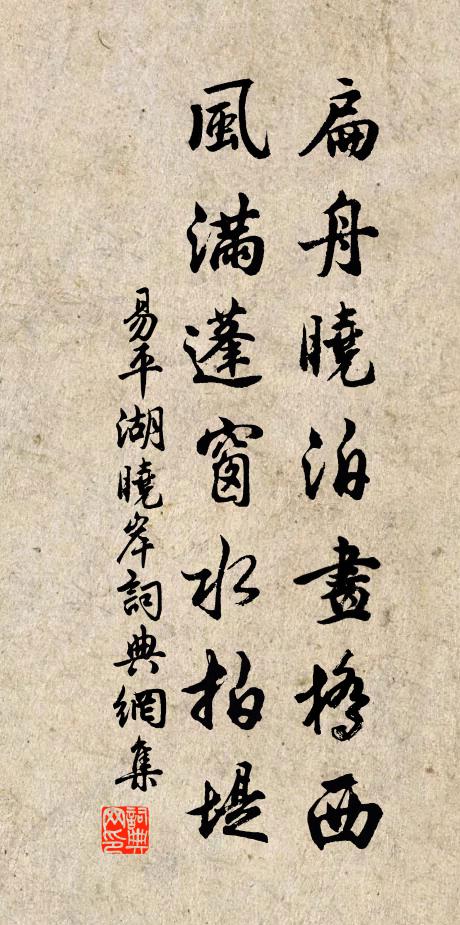 扁舟曉泊畫橋西
風滿蓬窗水拍堤
易平湖曉岸詞典網集
詞典网印